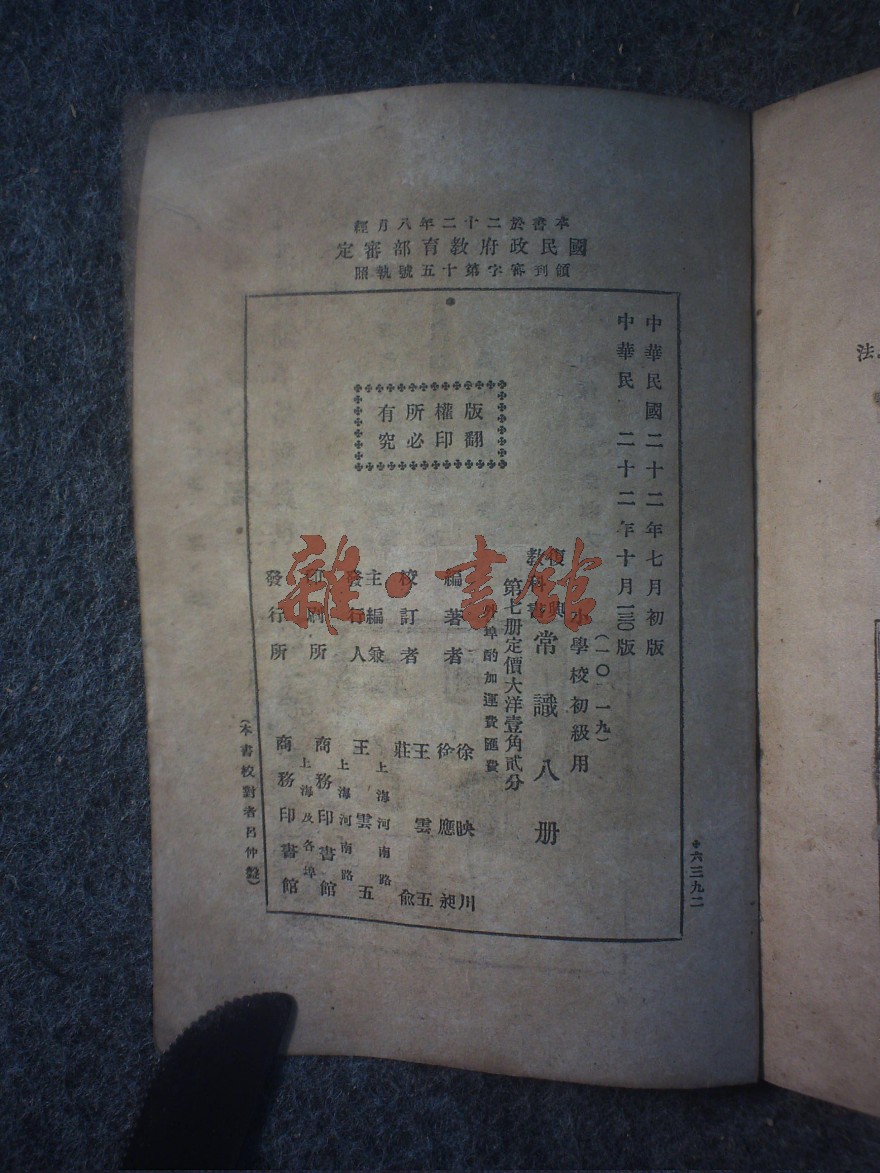 本書於二十二年八月經
國民政府教育部審定
領到審字第十五號執照
中華民國二十二年七月初版
中華民 二十二年十月一三〇版
(一〇一九)
小學校初級用
復興
教科書
常識八册
第七册定價大洋壹角貳分
外埠酌加運費匯費
版權所有
翻印必究
編著者 徐映川 徐應昶
校訂者 王雲五 莊俞
主編兼
發行人 王雲五
上海河南路
印刷所 商務印書館
上海河南路
發行所 商務印書館
上海及各埠
(本書校對者呂仲
六三九二
雜·書館
法